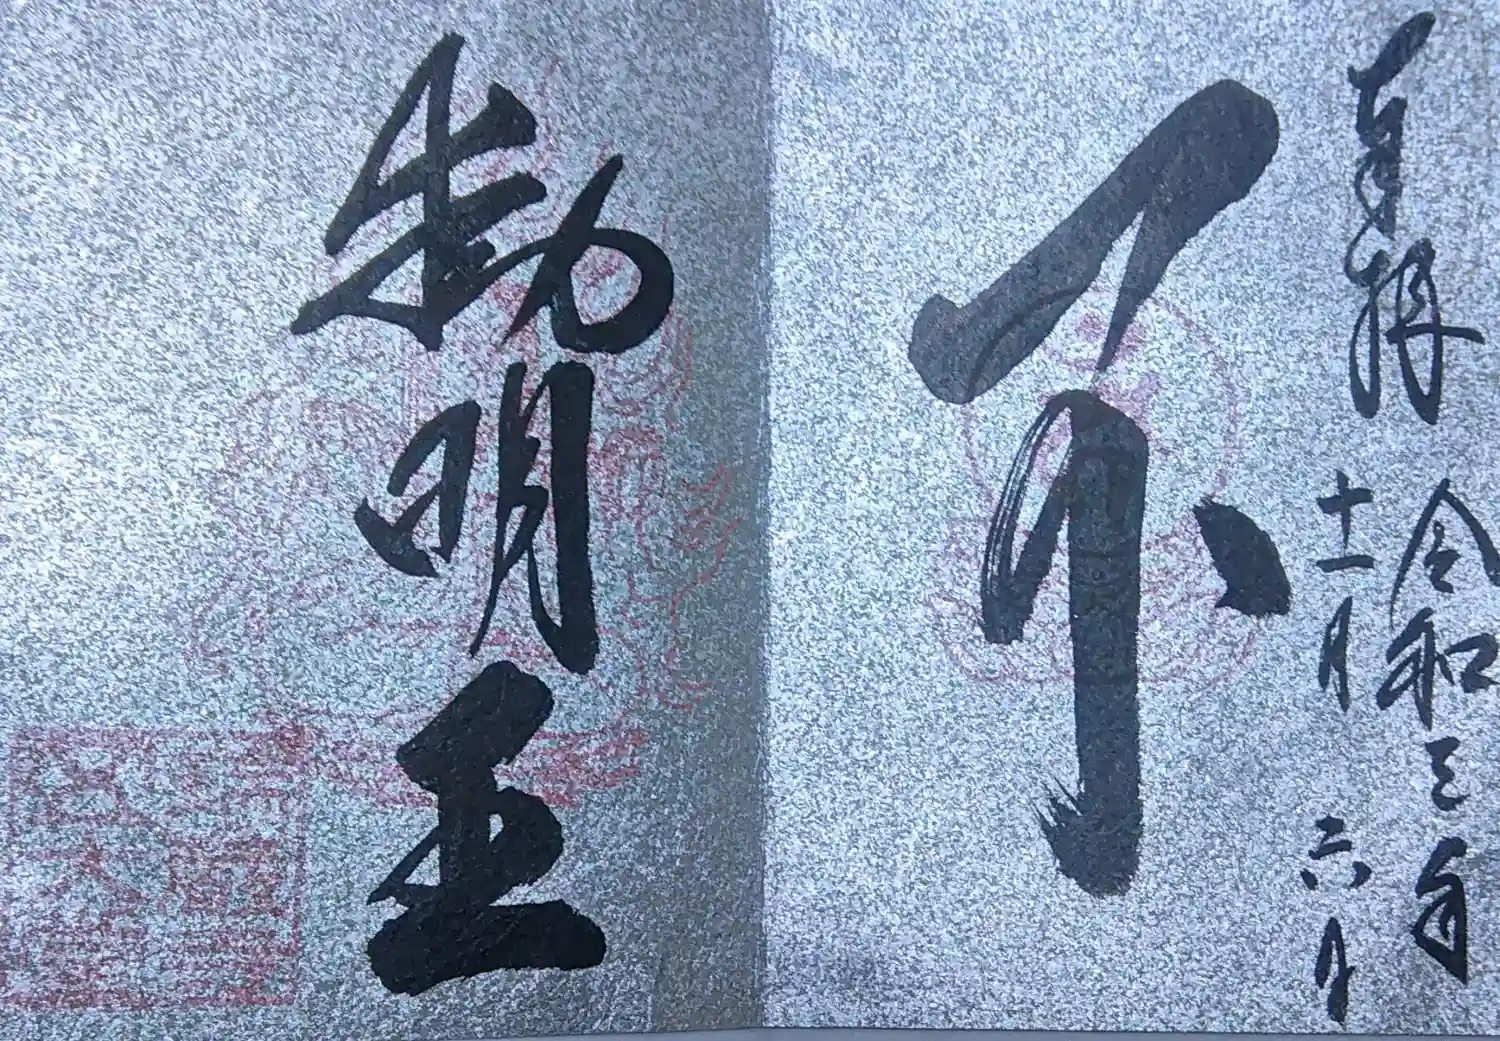 奉拝
令和三年
十一月二六日
不
動明王